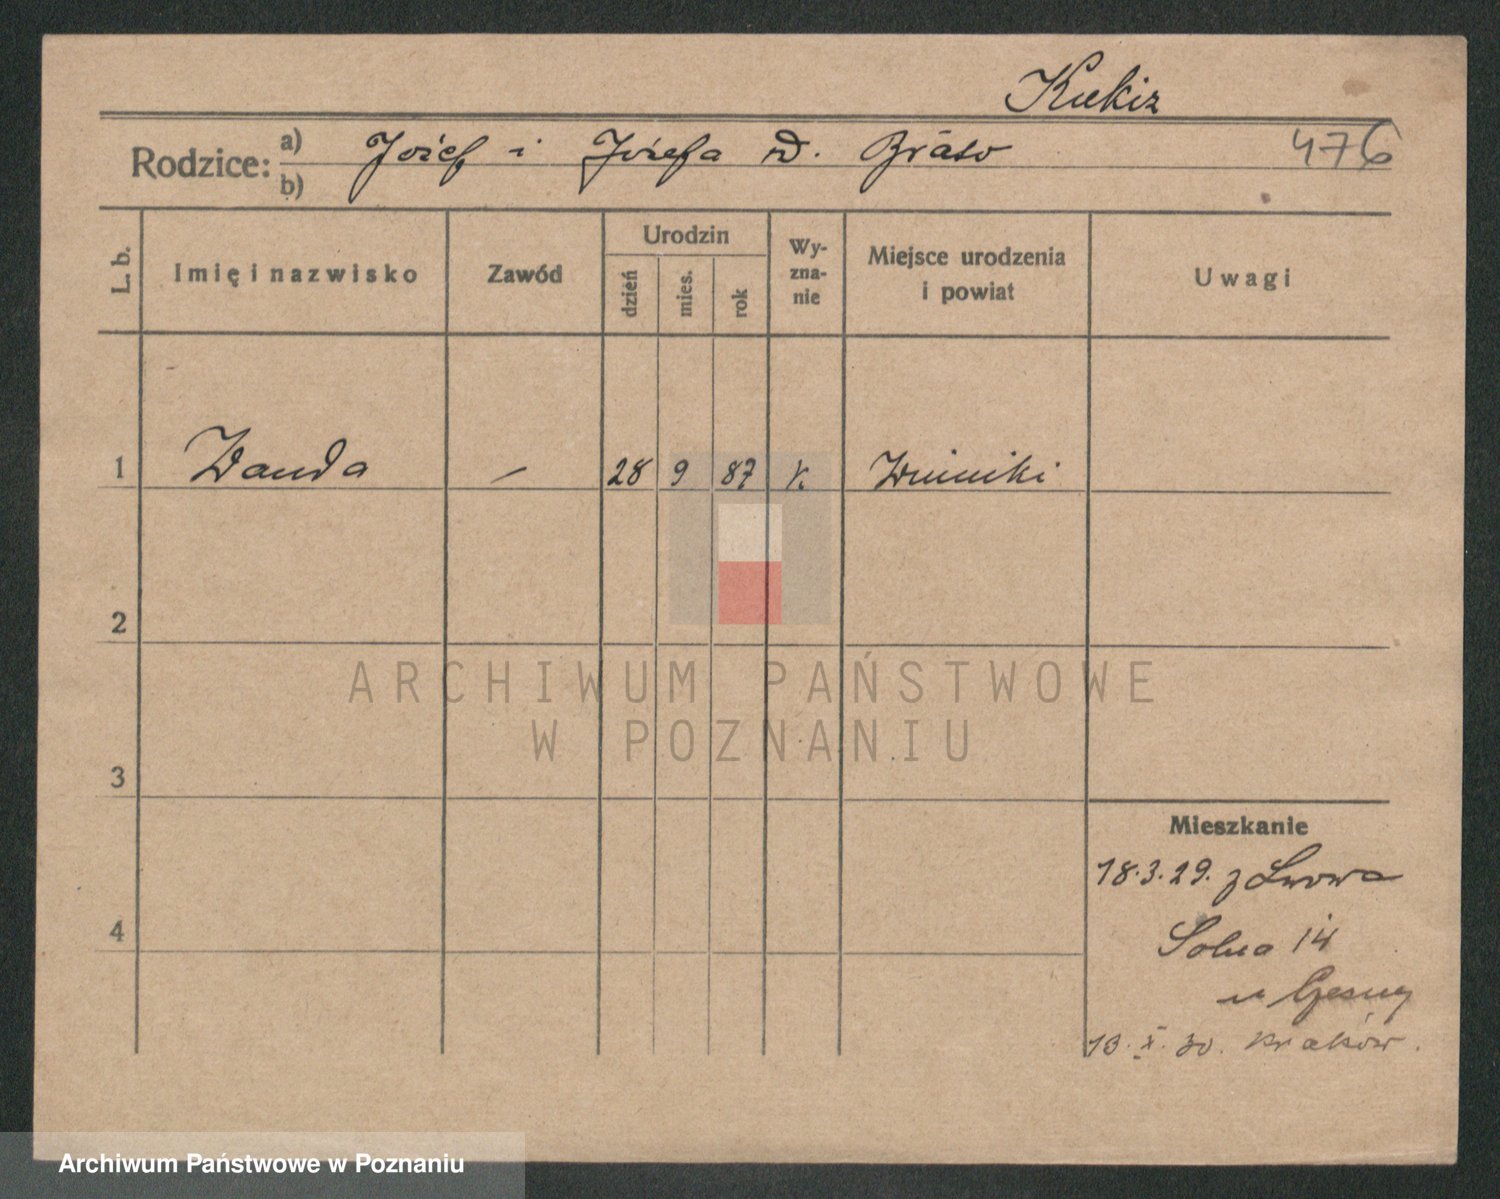 Kukiz
Rodzice: a) Józef i Józefa d.
b)
476
L. b.
Imię i nazwisko
Zawód
Urodzin
dzień
mies.
rok
Wy-
zna-
nie
Miejsce urodzenia
i powiat
Uwagi
1 Wanda – 28 9 87 k. Winniki
2
3
4
Mieszkanie
18.3.29. z Lwowa
Solna 14
u
13. X. 30. Kraków.
ARCHIWUM PAŃSTWOWE
W POZNANIU
Archiwum Państwowe w Poznaniu